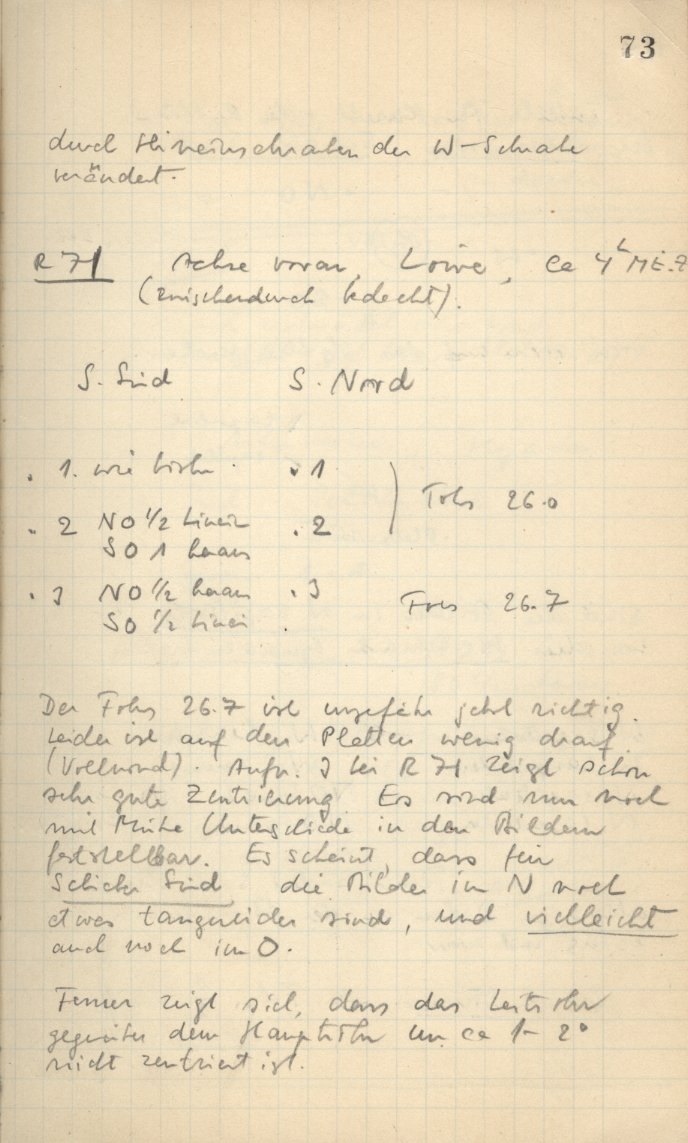 73
durch Hineinschrauben der W-Schraube
verändert.
R 71 Achse voran, Löwe, ca 4h MEZ
(zwischendurch bedeckt).
S. Süd S. Nord
. 1. wie bisher . 1
Fokus 26.0
. 2 NO 1/2 hinein . 2
SO 1 heraus
. 3 NO 1/2 heraus . 3
SO 1/2 hinein . Fokus 26.7
Der Fokus 26.7 ist ungefähr jetzt richtig.
Leider ist auf den Platten wenig drauf
(Vollmond). Aufn. 3 bei R 71 zeigt schon
sehr gute Zentrierung Es sind nun noch
mit Mühe Unterschiede in den Bildern
feststellbar. Es scheint, dass für
Schieber Süd die Bilder im N noch
etwas sind, und vielleicht
auch noch im O.
Ferner zeigt sich, dass das Leitrohr
gegenüber dem Hauptrohr um ca 1-2°
nicht zentriert ist.